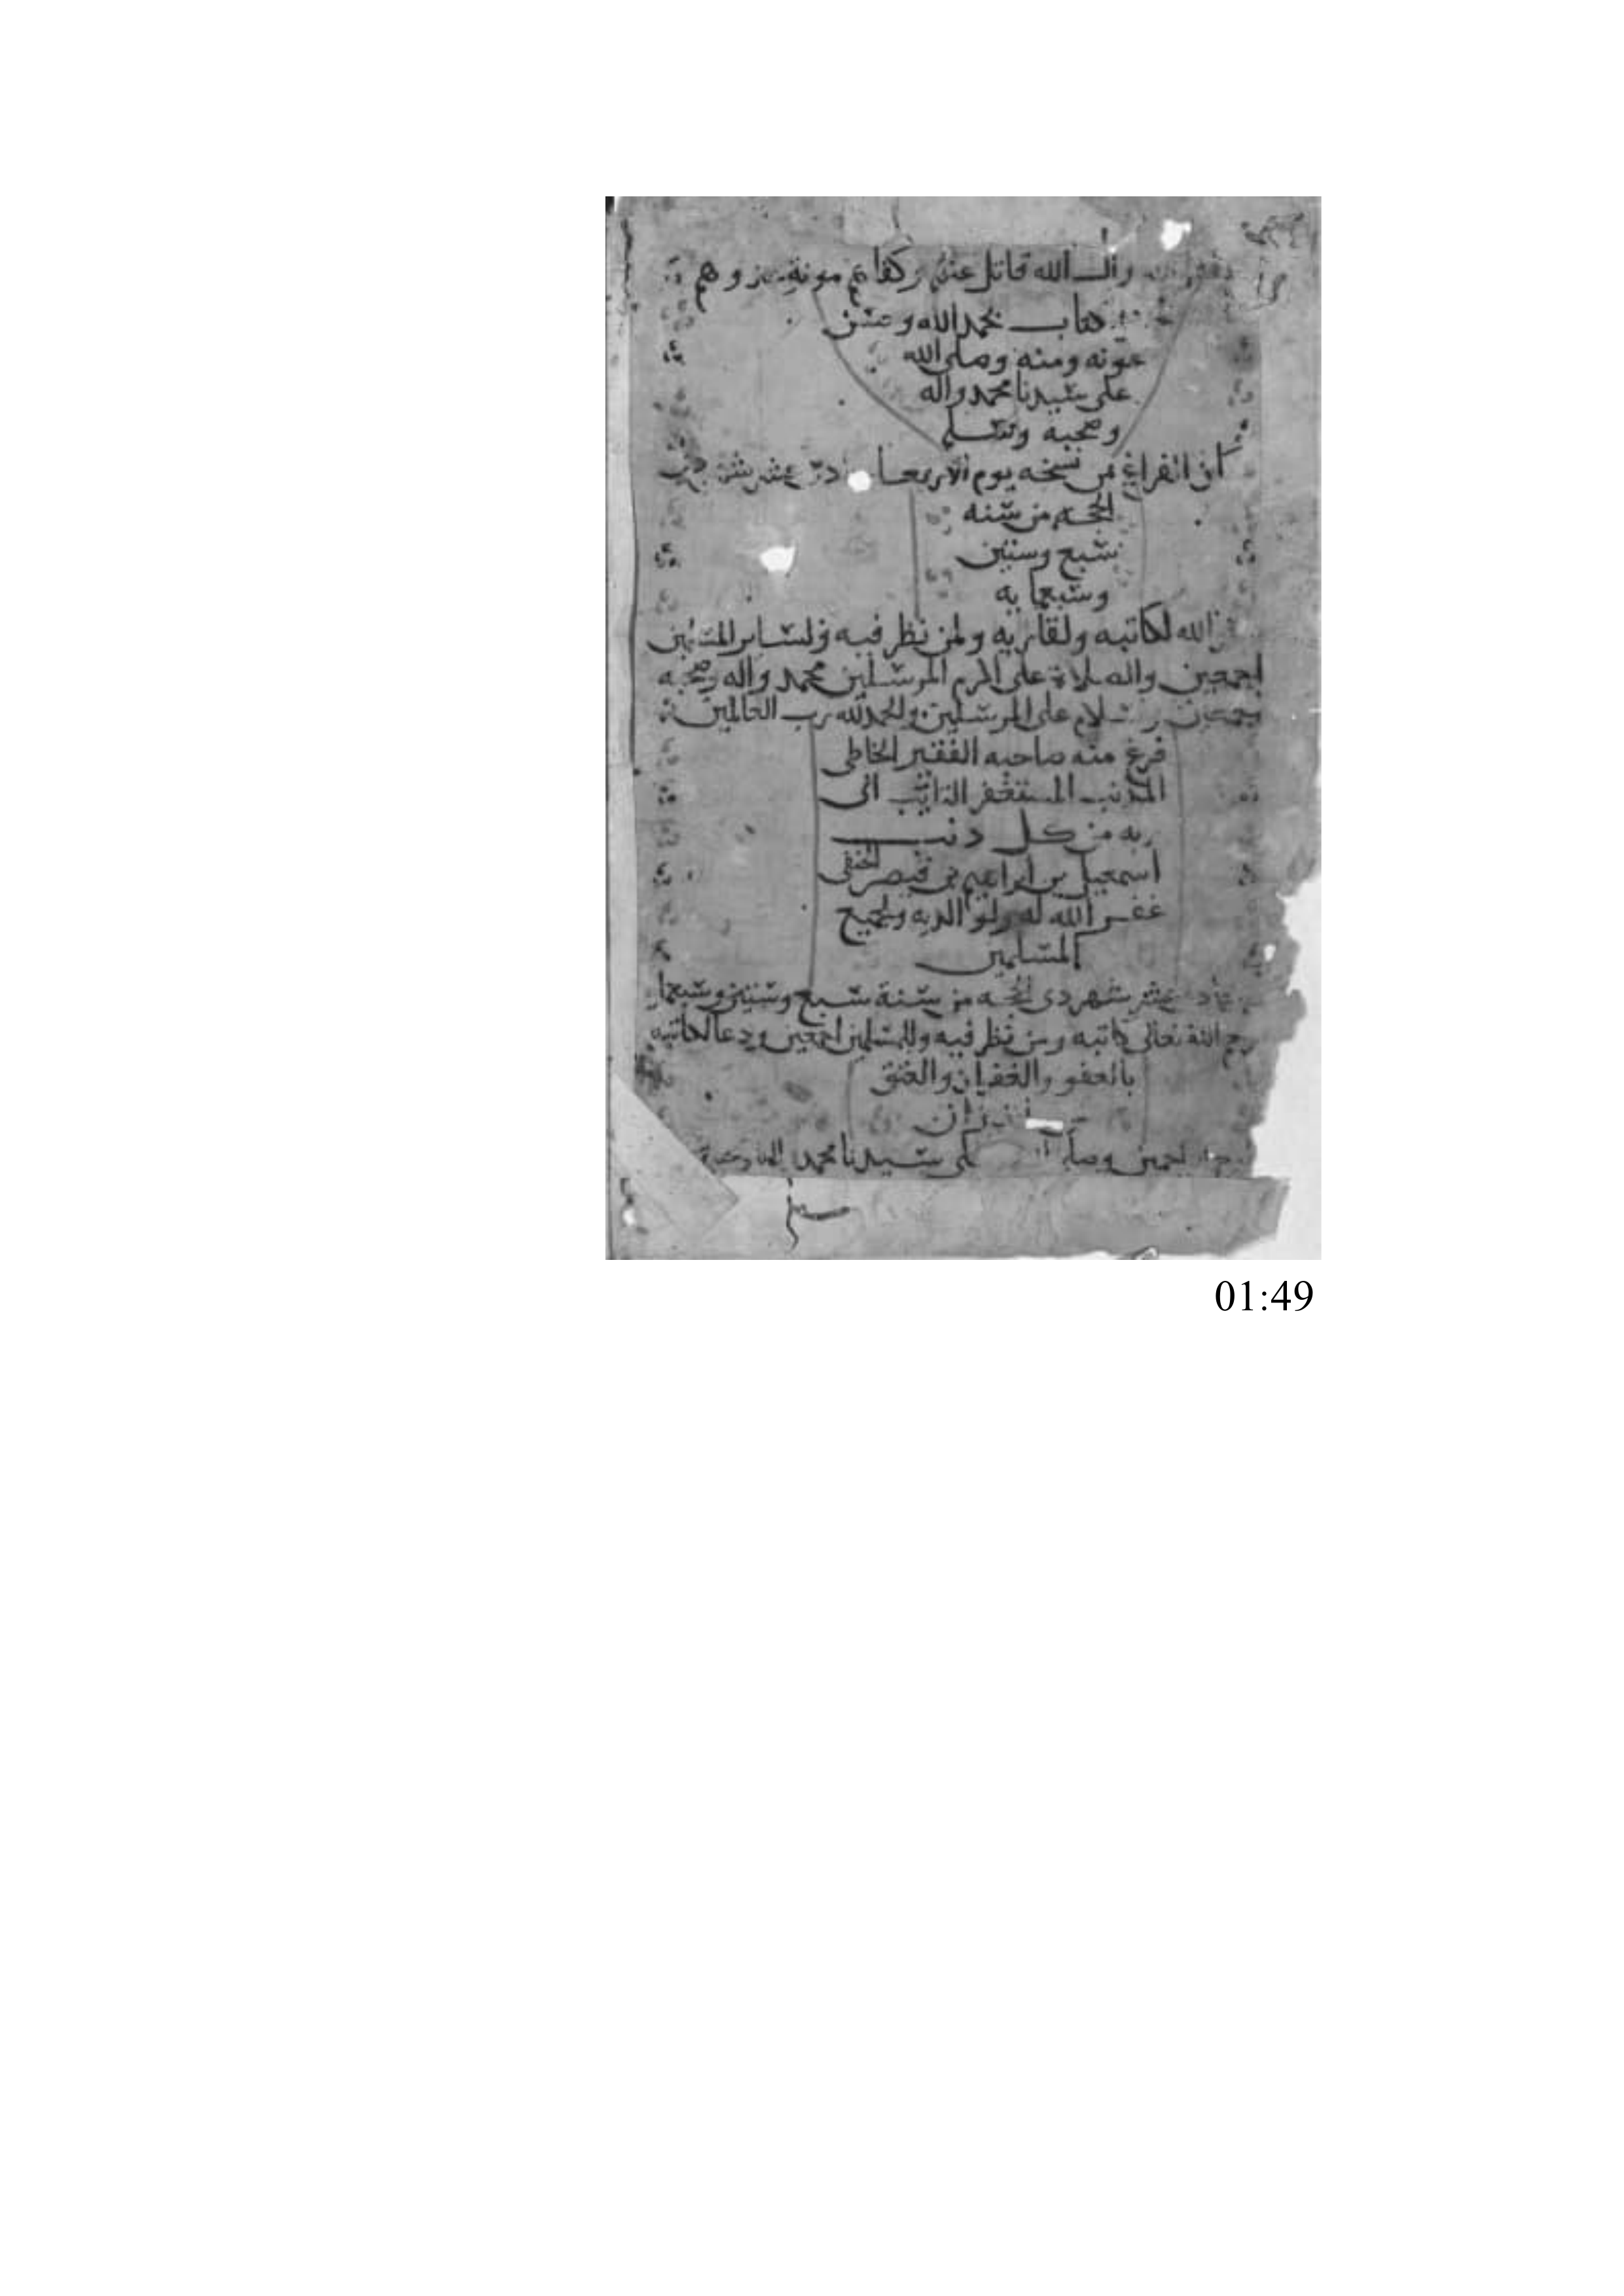 وان الله قاتل عنهم وكفاهم مونة وهم
كتاب بحمد الله وحسن
عونه ومنه وصلى الله
على سيدنا محمد واله
وصحبه وسلم
كان الفراغ من نسخه يوم الاربعا عشر شهر
الحجه من سنه
سبع وستين
وسبعمايه
الله لكاتبه ولقاريه ولمن نظر فيه ولساير المسلمين
اجمعين والصلاة على اكرم المرسلين محمد واله وصحبه
اجمعين وسلام على المرسلين والحمد لله رب العالمين
فرغ منه صاحبه الفقير الخاطى
المذنب المستغفر التايب الى
ربه من كل دنب
اسمعيل بن ابراهيم بن قيصر الحنفى
غفر الله له ولوالديه ولجميع
المسلمين
عشر شهر دى الحجه من سنة سبع وستين وسبعما
رحم الله تعالى كاتبه ومن نظر فيه وللمسلمين اجمعين ودعا لكاتبه
بالعفو والغفران والعتق
اجمعين وصلى على سيدنا محمد
وسلم
01:49